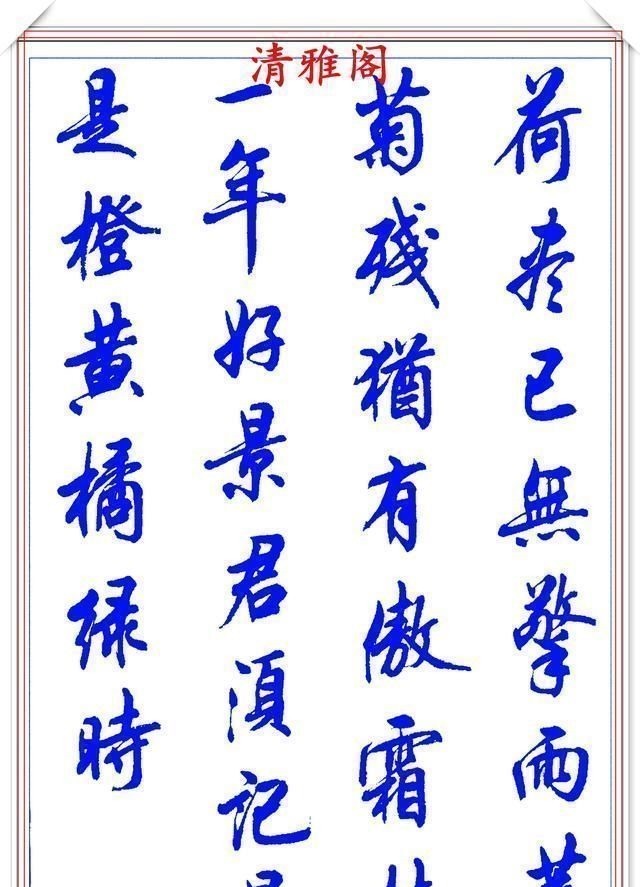 清雅阁
荷尽已無擎雨
菊残猶有傲霜
一年好景君須記
是橙黄橘绿時